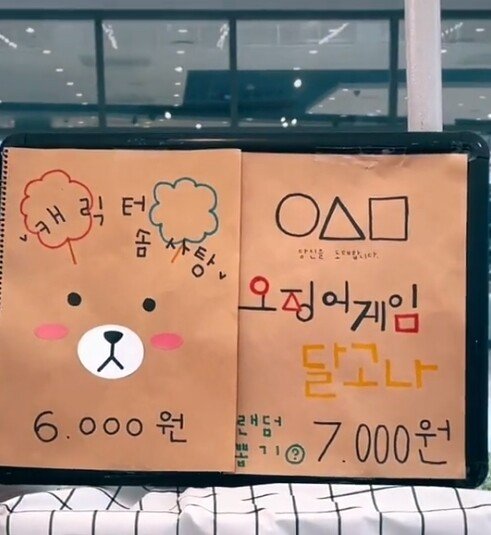 캐릭터
솜사탕
6.000원
○△□
당신을 초대합니다.
오징어게임
달고나
랜덤
뽑기?
7.000원